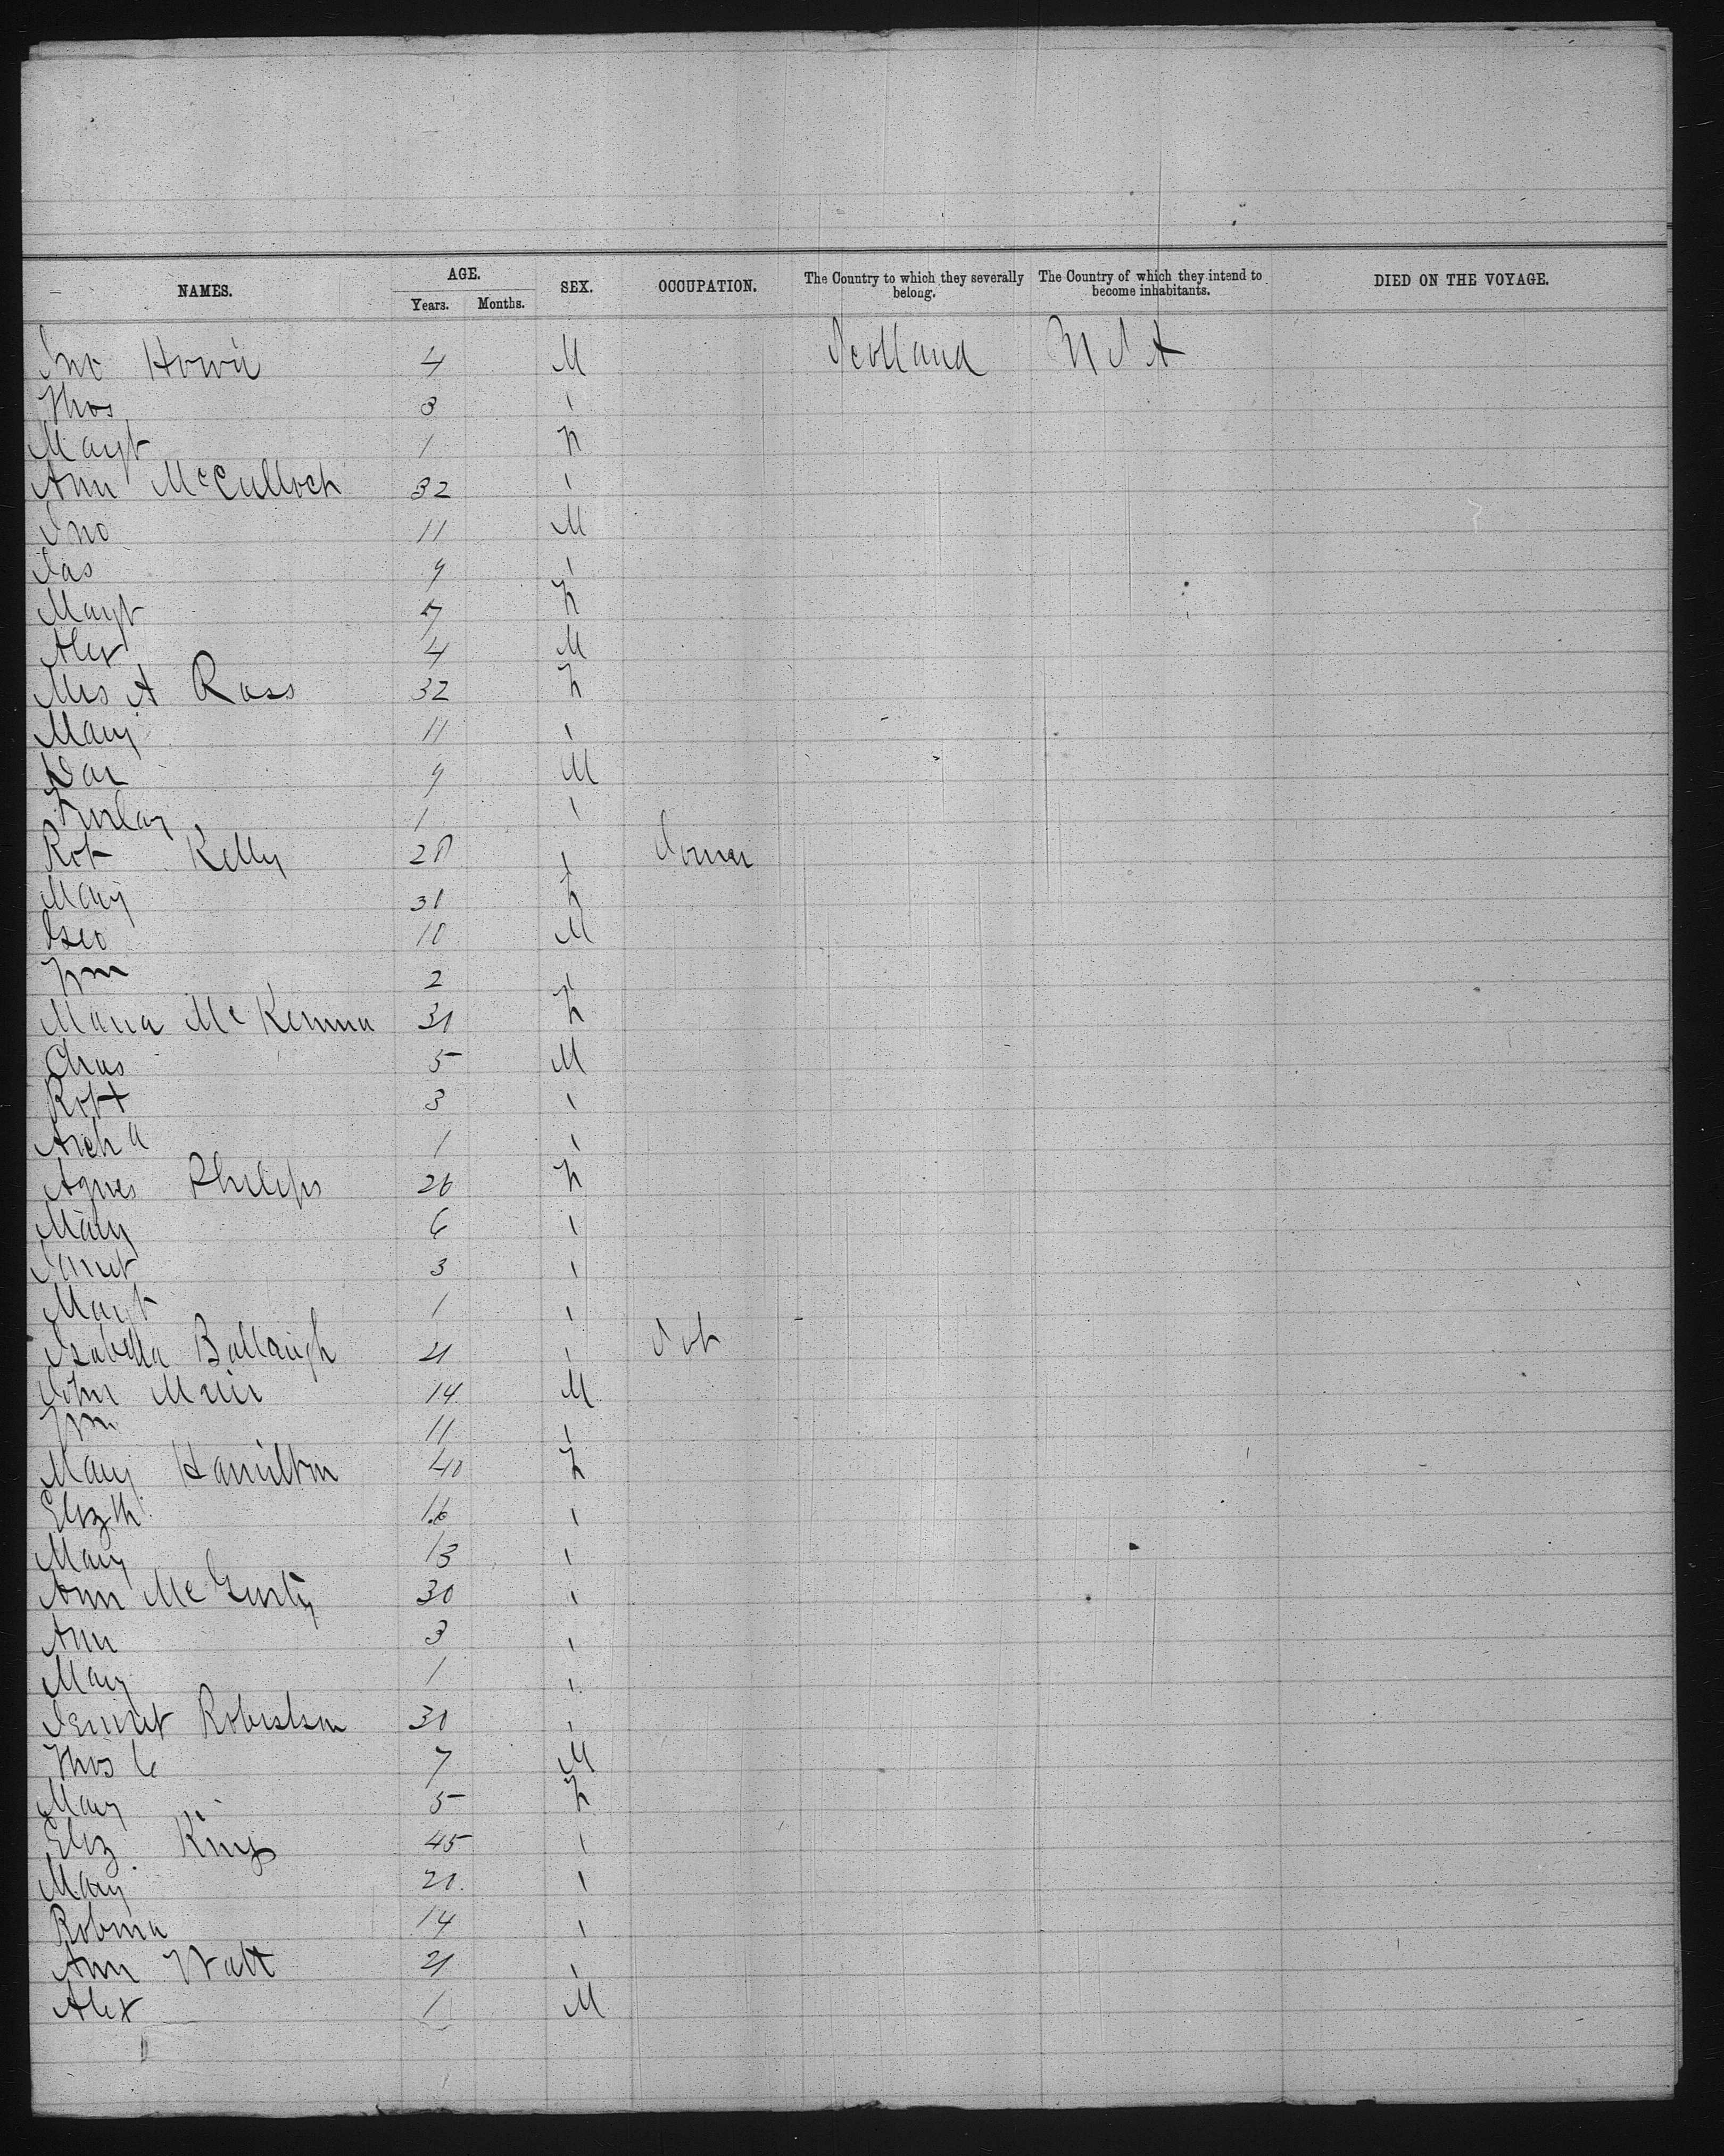 NAMES. AGE. Years. Months. SEX. OCCUPATION. The Country to which they severally belong. The Country of which they intend to become inhabitants. DIED ON THE VOYAGE.
Jno Howie 4 M Scotland U S A
Thos 3 "
Margt 1 F
Ann McCulloch 32 "
Jno 11 M
Jas 9 "
Margt 7 F
Alex 4 M
Mrs A Ross 32 F
Mary 11 "
Dan 9 M
Finlay 1 "
Robt Kelly 28 " Joiner
Mary 31 F
Geo 10 M
Wm 2 "
Maria McKenna 31 F
Chas 5 M
Robt 3 "
Archd 1 "
Agnes Philips 26 F
Mary 6 "
Janet 3 "
Margt 1 "
Isabella 21 "
John Muir 14 M
Wm 11 "
Mary Hamilton 40 F
Elizth 16 "
Mary 13 "
Ann 30 "
Ann 3 "
Mary 1 "
Robertson 30 "
Thos C 7 M
Mary 5 F
Eliz King 45 "
Mary 20 "
Robina 14 "
Ann Watt 21 "
Alex 1 M